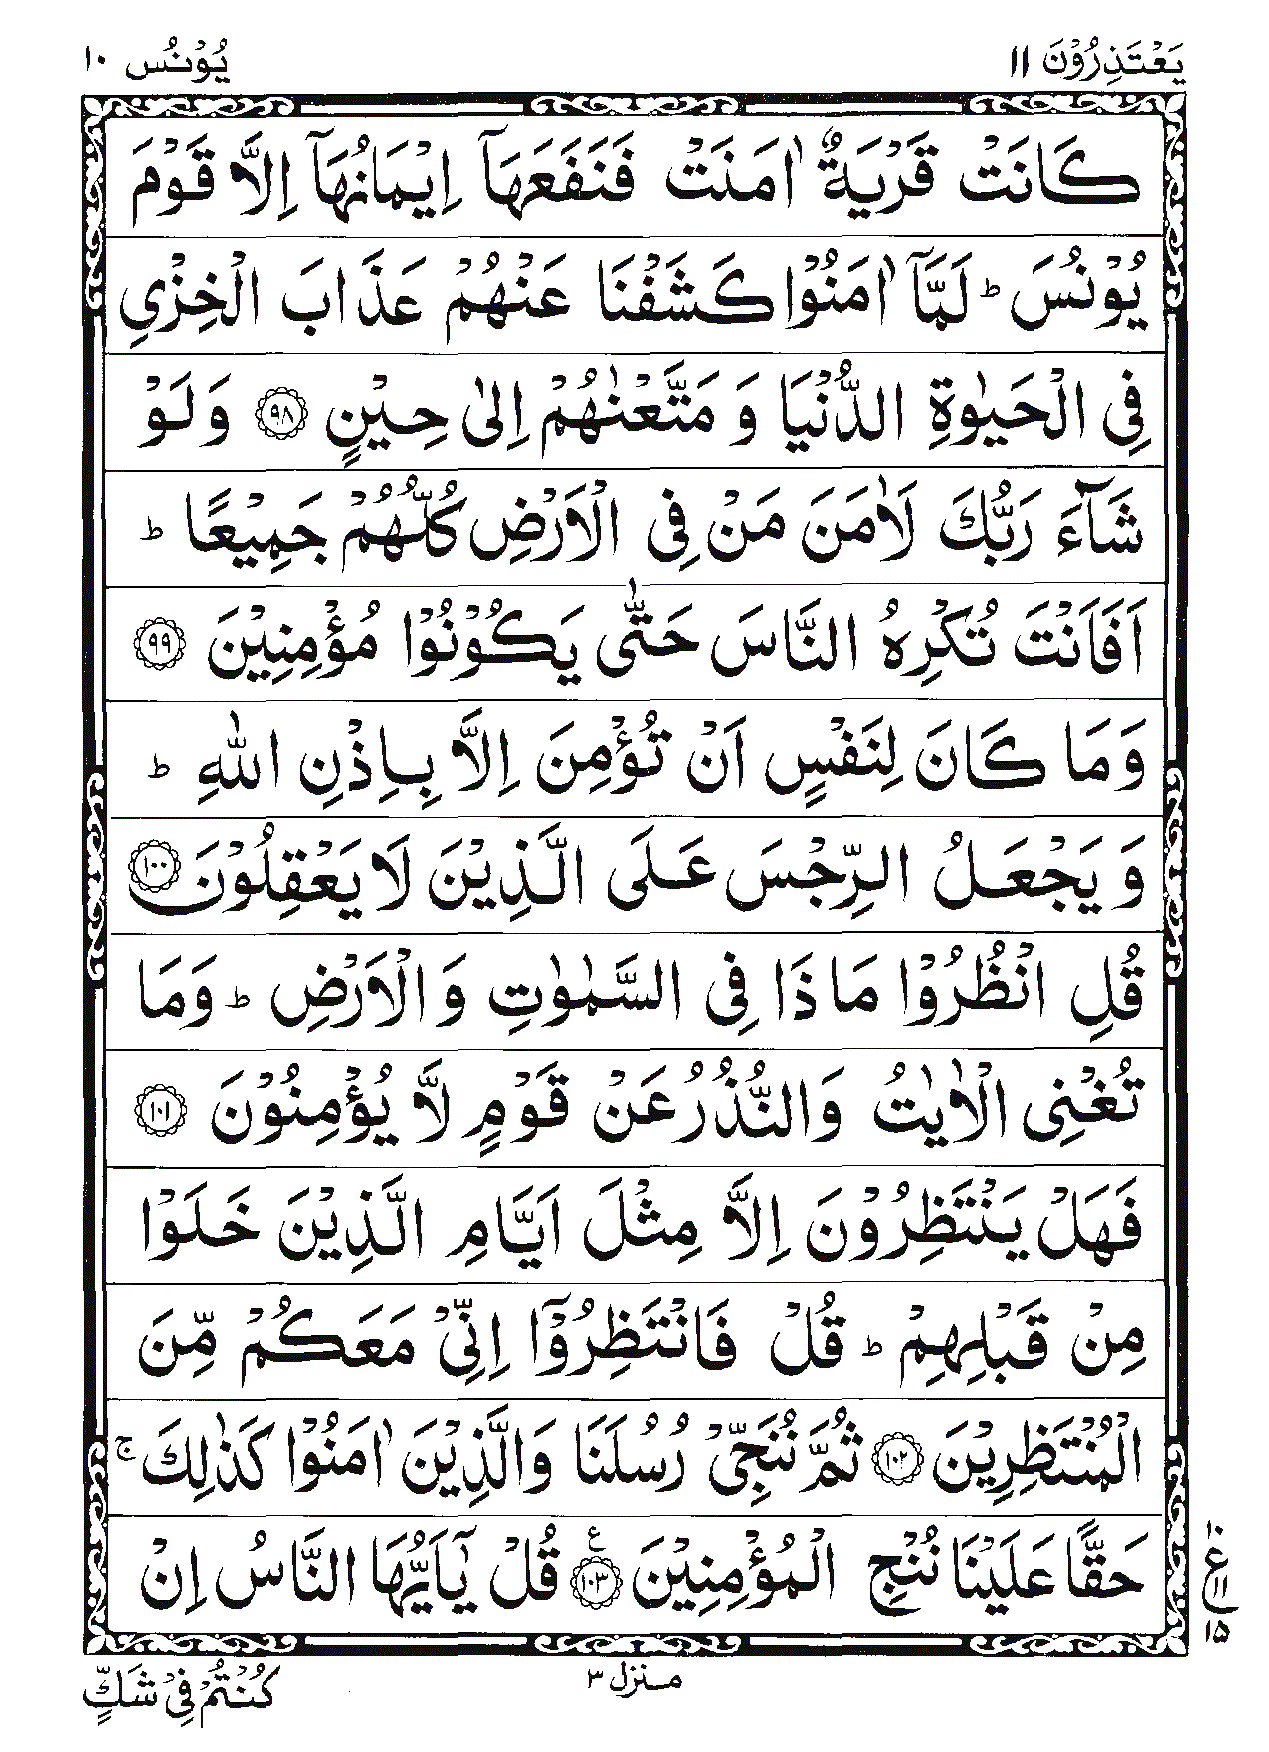 يَعْتَذِرُوْنَ ١١
يُوْنُس ١٠
كَانَتْ قَرْيَةٌ اٰمَنَتْ فَنَفَعَهَآ اِيْمَانُهَآ اِلَّا قَوْمَ
يُوْنُسَ ؕ لَمَّآ اٰمَنُوْا كَشَفْنَا عَنْهُمْ عَذَابَ الْخِزْيِ
فِي الْحَيٰوةِ الدُّنْيَا وَ مَتَّعْنٰهُمْ اِلٰى حِيْنٍ ﴿۹۸﴾ وَلَوْ
شَآءَ رَبُّكَ لَاٰمَنَ مَنْ فِي الْاَرْضِ كُلُّهُمْ جَمِيْعًا ؕ
اَفَاَنْتَ تُكْرِهُ النَّاسَ حَتّٰى يَكُوْنُوْا مُؤْمِنِيْنَ ﴿۹۹﴾
وَمَا كَانَ لِنَفْسٍ اَنْ تُؤْمِنَ اِلَّا بِاِذْنِ اللّٰهِ ؕ
وَ يَجْعَلُ الرِّجْسَ عَلَى الَّذِيْنَ لَا يَعْقِلُوْنَ ﴿۱۰۰﴾
قُلِ انْظُرُوْا مَا ذَا فِي السَّمٰوٰتِ وَ الْاَرْضِ ؕ وَمَا
تُغْنِي الْاٰيٰتُ وَالنُّذُرُ عَنْ قَوْمٍ لَّا يُؤْمِنُوْنَ ﴿۱۰۱﴾
فَهَلْ يَنْتَظِرُوْنَ اِلَّا مِثْلَ اَيَّامِ الَّذِيْنَ خَلَوْا
مِنْ قَبْلِهِمْ ؕ قُلْ فَانْتَظِرُوْٓا اِنِّيْ مَعَكُمْ مِّنَ
الْمُنْتَظِرِيْنَ ﴿۱۰۲﴾ ثُمَّ نُنَجِّيْ رُسُلَنَا وَالَّذِيْنَ اٰمَنُوْا كَذٰلِكَ ۚ
حَقًّا عَلَيْنَا نُنْجِ الْمُؤْمِنِيْنَ ﴿۱۰۳﴾ ع قُلْ يٰٓاَيُّهَا النَّاسُ اِنْ
١٠
ع
١١
١٥
منزل ٣
كُنْتُمْ فِيْ شَكٍّ